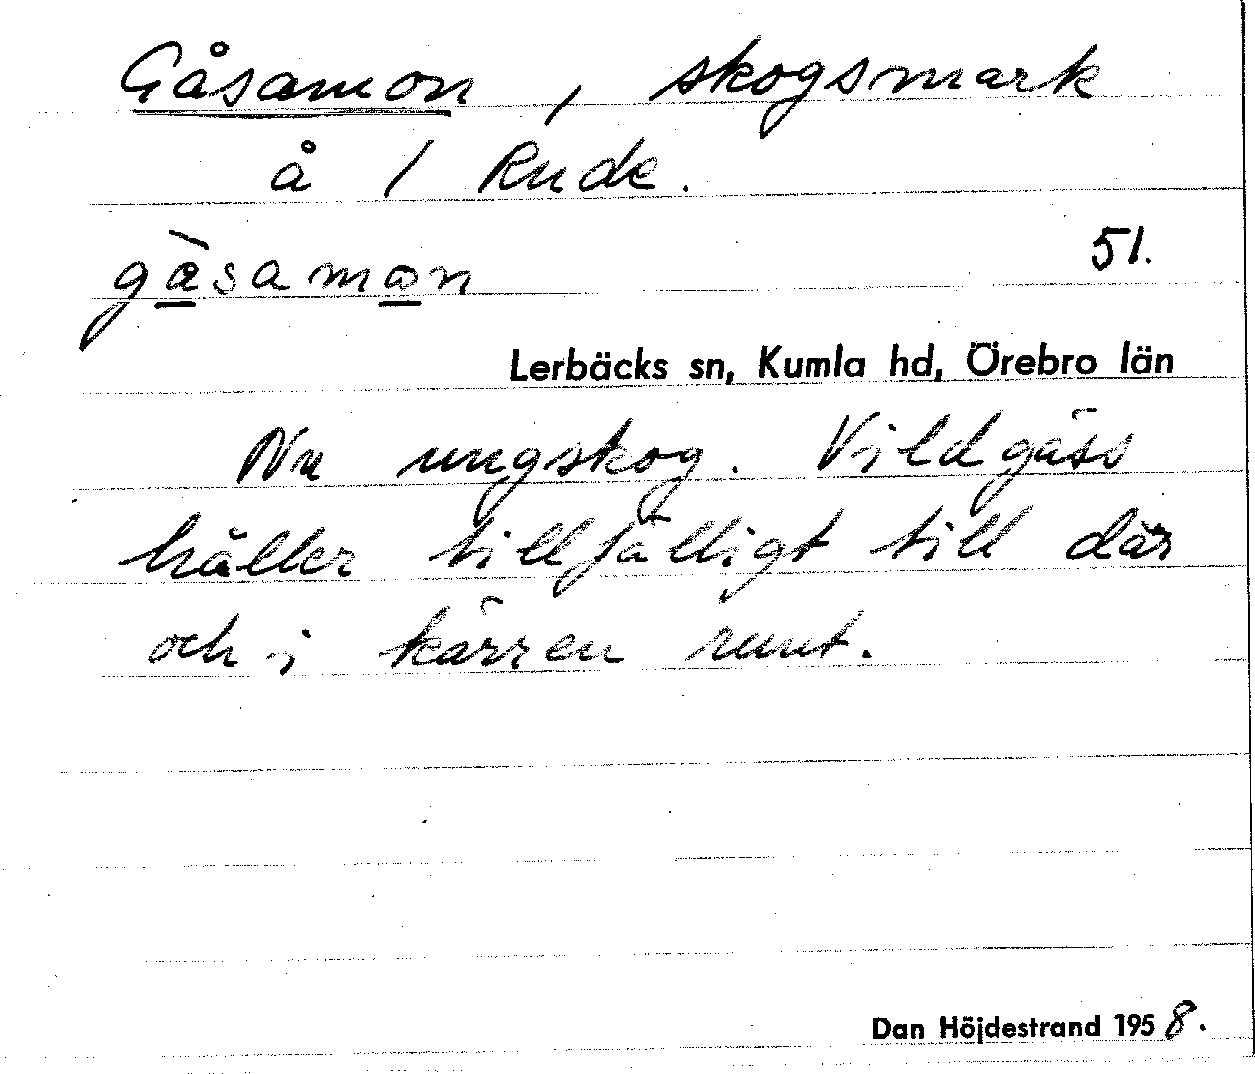 Gåsamon, skogsmark
å 1 Rude.
gàsamon
51.
Lerbäcks sn, Kumla hd, Örebro län
Nu ungskog. Vildgäss
håller tillfälligt till där
och i kärren runt.
Dan Höjdestrand 1958.